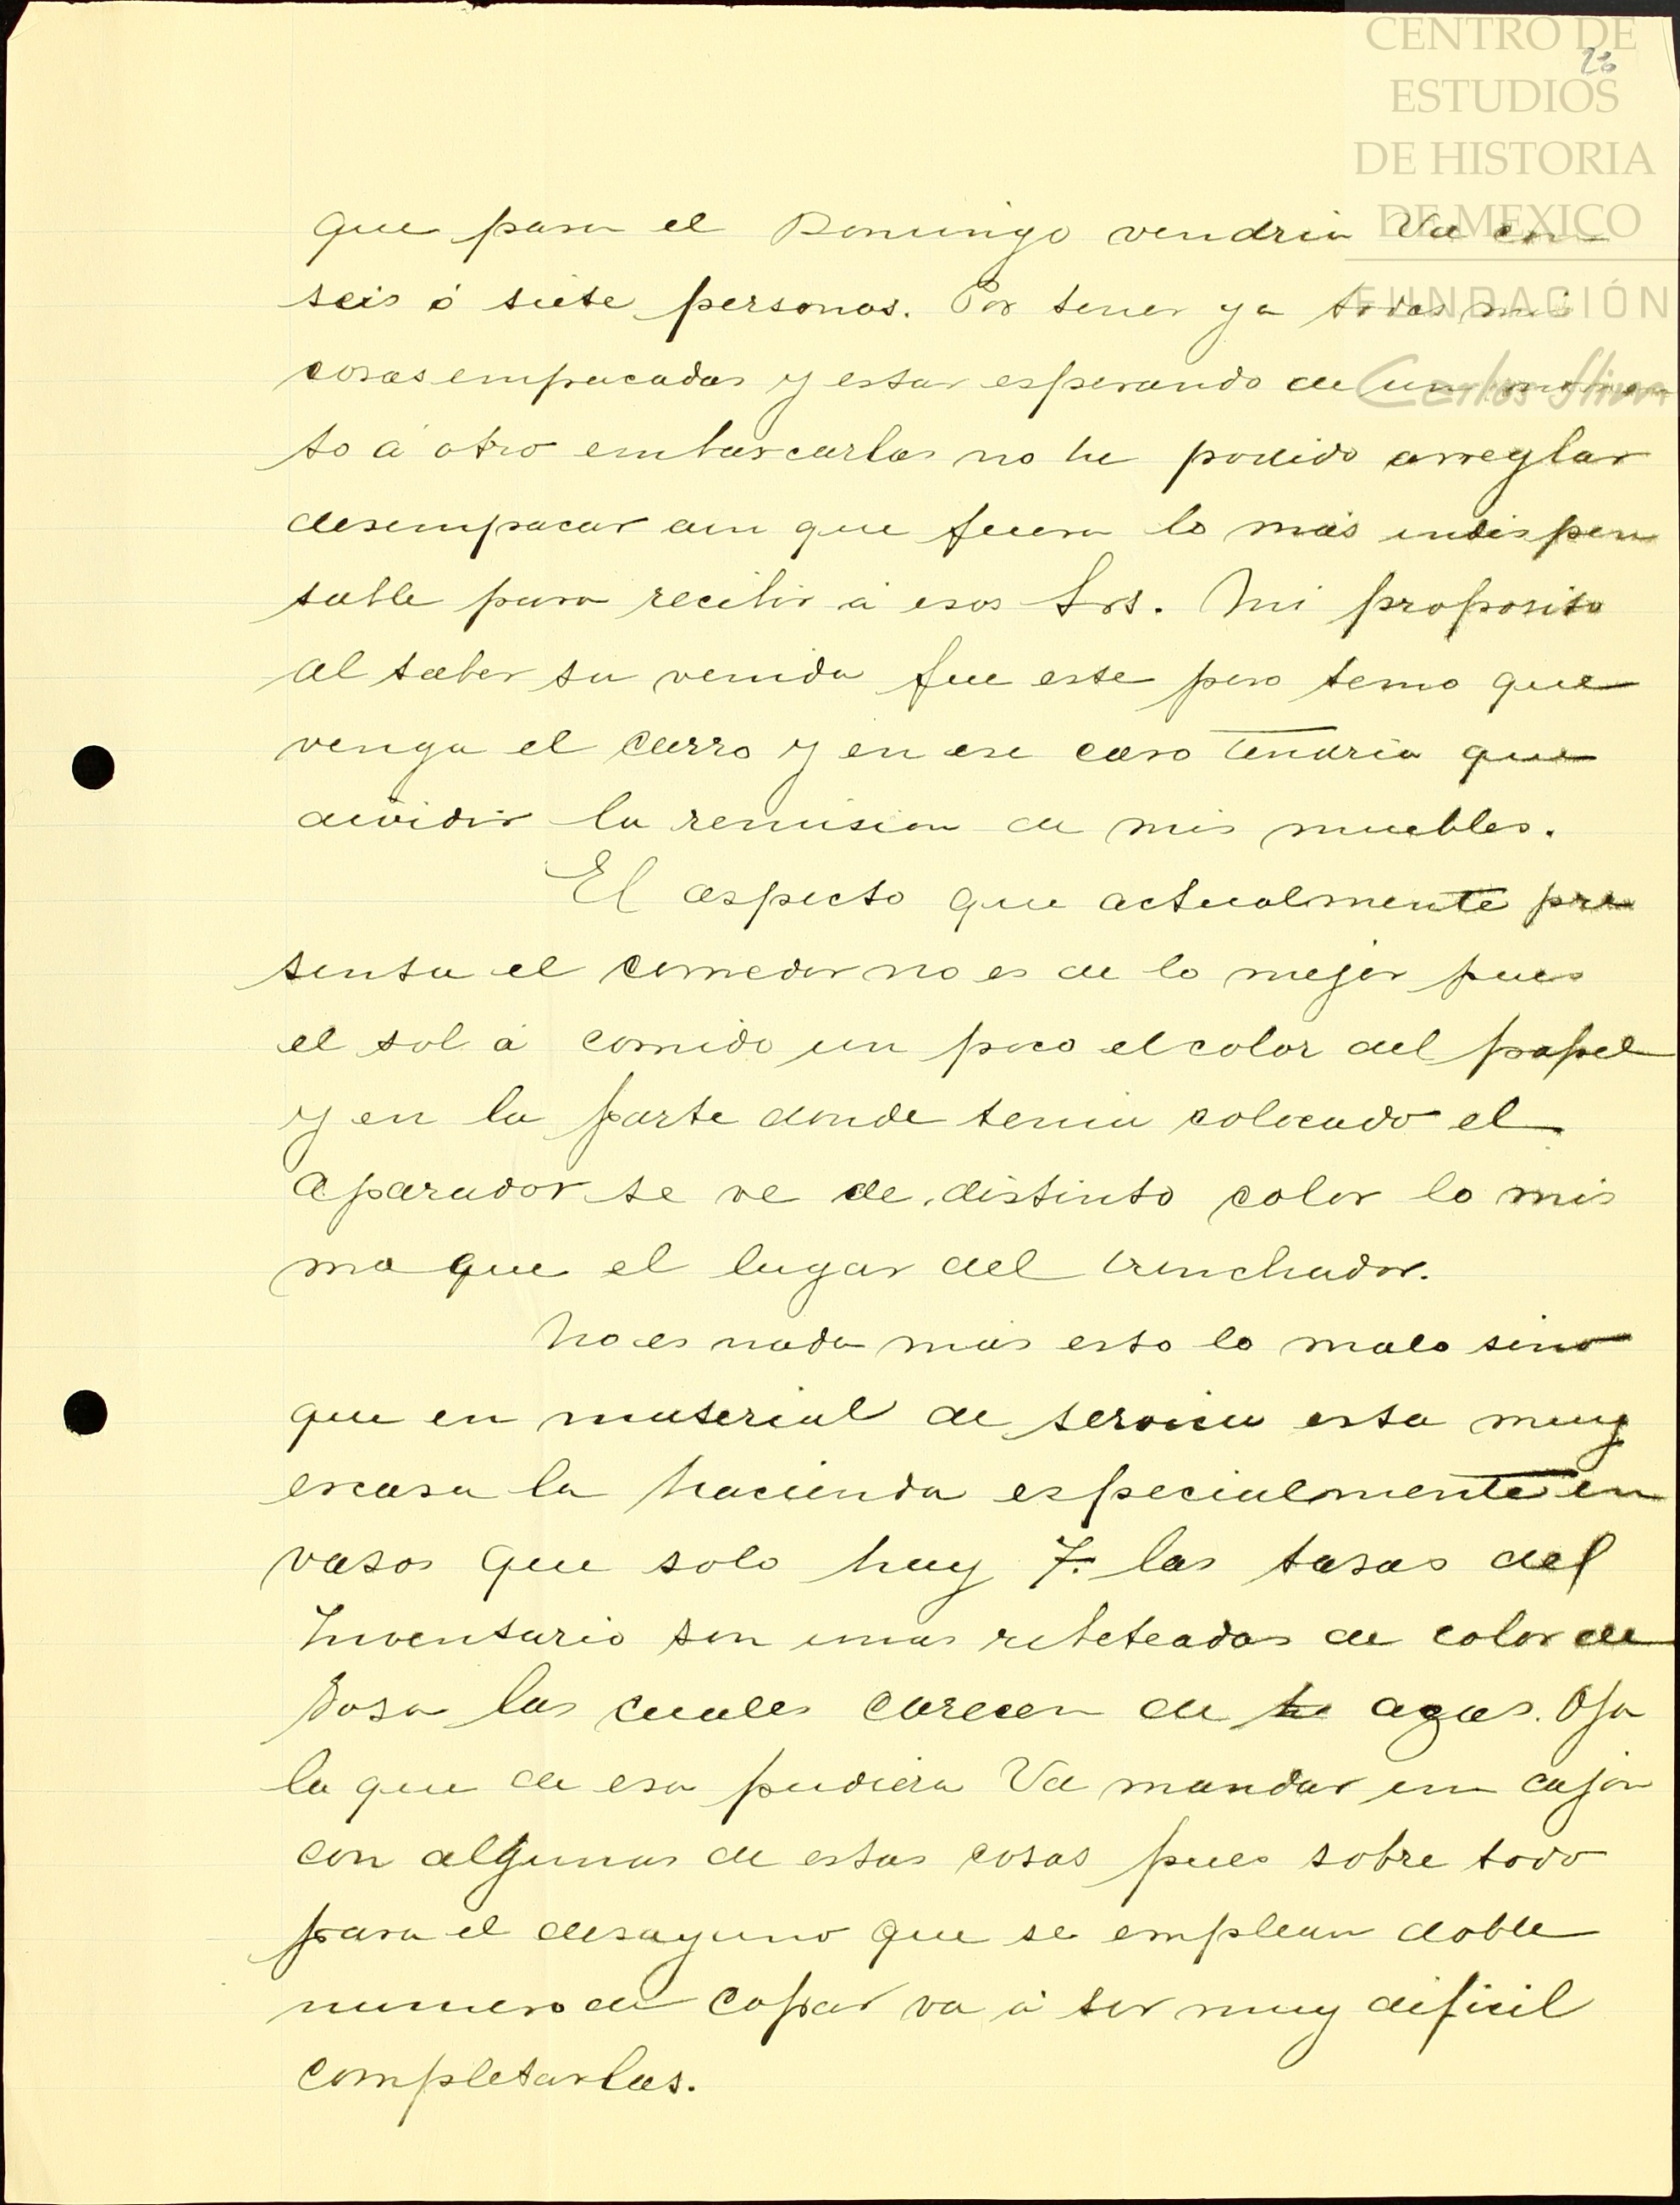 CENTRO DE
ESTUDIOS
DE HISTORIA
DE MEXICO
FUNDACIÓN
Carlos Slim
26
que para el Domingo vendria Vd con
seis ó siete personas. Por tener ya todas mis
cosas empacadas y estar esperando de un momen
to á otro embarcarlas no he podido arreglar
desempacar aun que fuera lo más indispen
sable para recibir á esos Srs. Mi proposito
al saber su venida fue este pero temo que
venga el carro y en ese caso tendria que
dividir la remision de mis muebles.
El aspecto que actualmente pre
senta el comedor no es de lo mejor pues
el sol á comido un poco el color del papel
y en la parte donde tenia colocado el
aparador se ve de distinto color lo mis
mo que el lugar del trinchador.
No es nada mas esto lo malo sino
que en material de servicio esta muy
escasa la hacienda especialmente en
vasos que solo hay 7. las tasas del
Inventario son unas ribeteadas de color de
rosa las cuales carecen de azas. Oja
la que de esa pudiera Vd mandar un cajon
con algunas de estas cosas pues sobre todo
para el desayuno que se emplean doble
numero de copas va á ser muy dificil
completarlas.